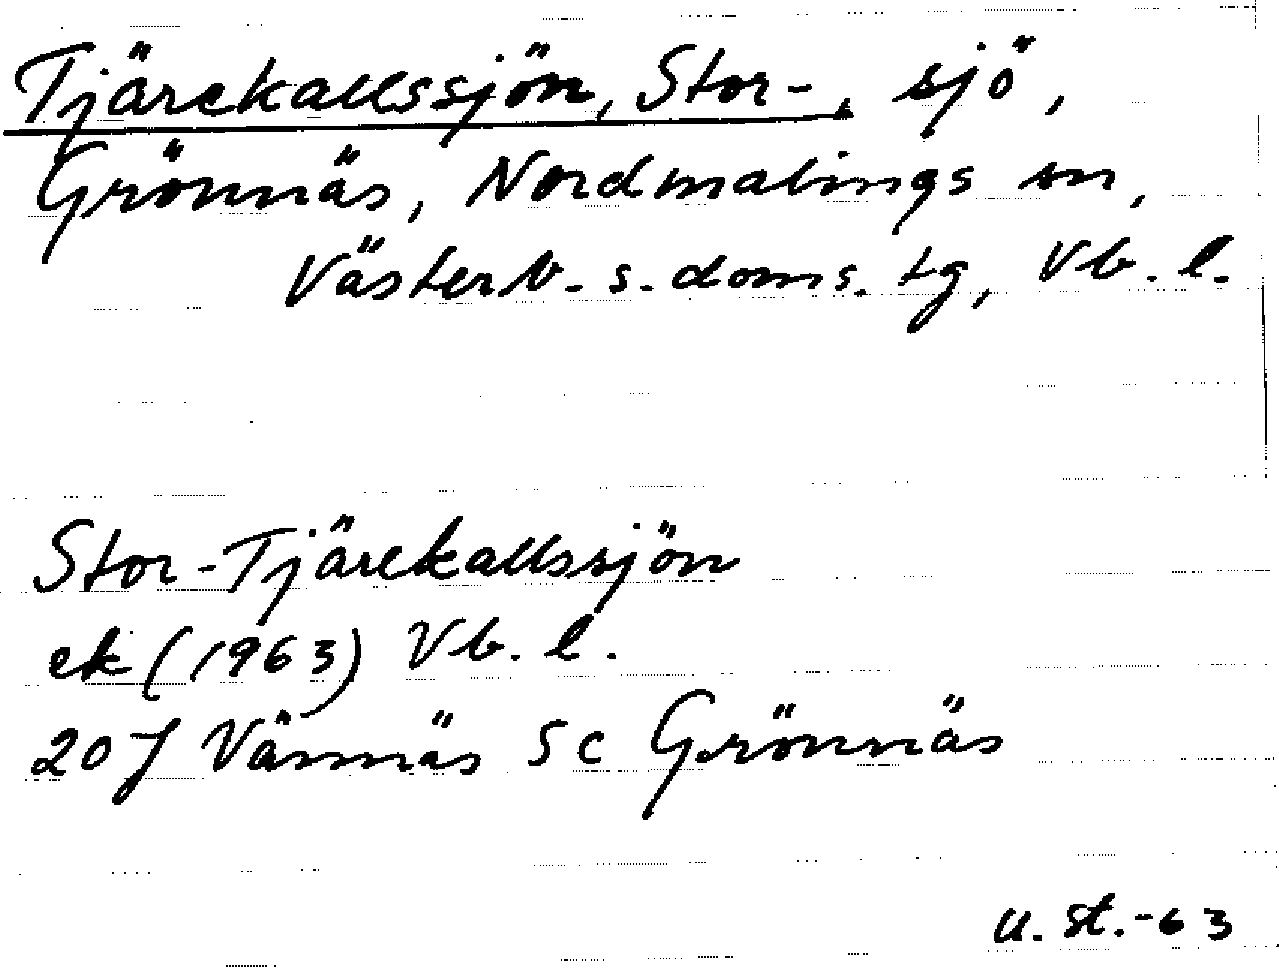 Tjärekallssjön, Stor-, sjö,
Grönnäs, Nordmalings sn,
Västerb. s. doms. tg, Vb. l.
Stor-Tjärekallssjön
ek (1963) Vb. l.
20J Vännäs 5c Grönnäs
u. st.-63